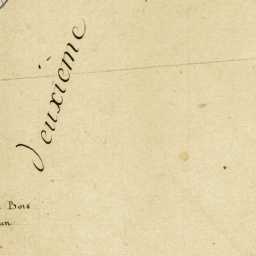 Deuxième
Bois